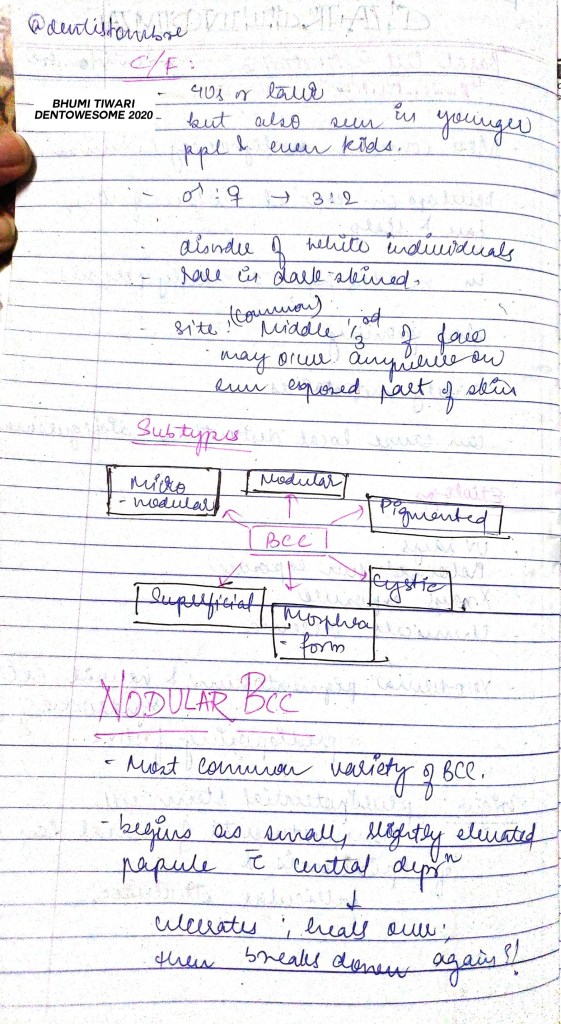 @dentistombre
C/F :
BHUMI TIWARI
DENTOWESOME 2020
- 40s or later
but also seen in younger
ppl & even kids.
- ♂ : ♀ → 3:2
- disorder of white individuals
rare in dark-skined.
- Site : (common) Middle 1/3rd of face
may occur anywhere on
sun exposed part of skin
Subtypes
Micro
- nodular
Nodular
Pigmented
BCC
Cystic
Superficial
Morphea
- form
NODULAR BCC
- Most common variety of BCC.
- begins as small, slightly elevated
papule c̄ central deprⁿ
↓
ulcerates ; heals over ;
then breaks down again !